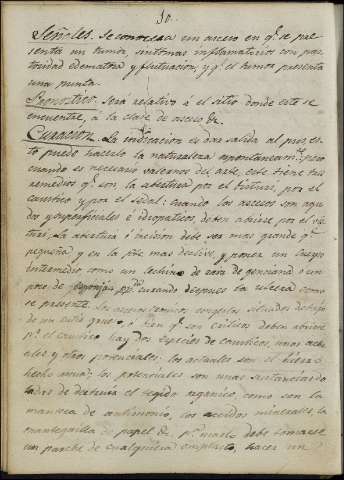 30.
Señales. Se conocera un aceso en q.e se pre
senta un tumor, sintomas inflamatorios con pas
tosidad edematosa y fluctuacion, y q.e el tumor presenta
una punta.
Pronostico. Será relativo á el sitio donde este se
encuentre, á la clase de aceso &c.
Curacion. La indicacion es dar salida al pus, es
to puede hacerlo la naturaleza espontaneam.te; pero
cuando es necesario valernos del arte, este tiene tres
remedios q.e son, la abertura por el bisturi, por el
caustico y por el sedal: cuando los acesos son agu
dos y superficiales é idiopaticos deben abrirse por el vis
turi; la abertura ó incision debe ser mas grande q.e
pequeña y en la p.te mas declive, y poner un cuerpo
intermedio, como un lechino de raiz de genciana ó un
poco de esponja p.da curando despues la ulcera como
se presente. Los
de un cutis grueso, ó bien q.e son criticos deben abrirse
p.r el caustico hay dos especies de causticos, unos actu
ales y otros potenciales: los actuales son el fierro
hecho ascua; los potenciales son unas sustancias do
tadas de destruir el tegido organico, como son la
manteca de antimonio, los accidos minerales, la
mantequilla de papel &c. p.a usarlo debe tomarse
un parche de cualquiera emplasto, hacer un